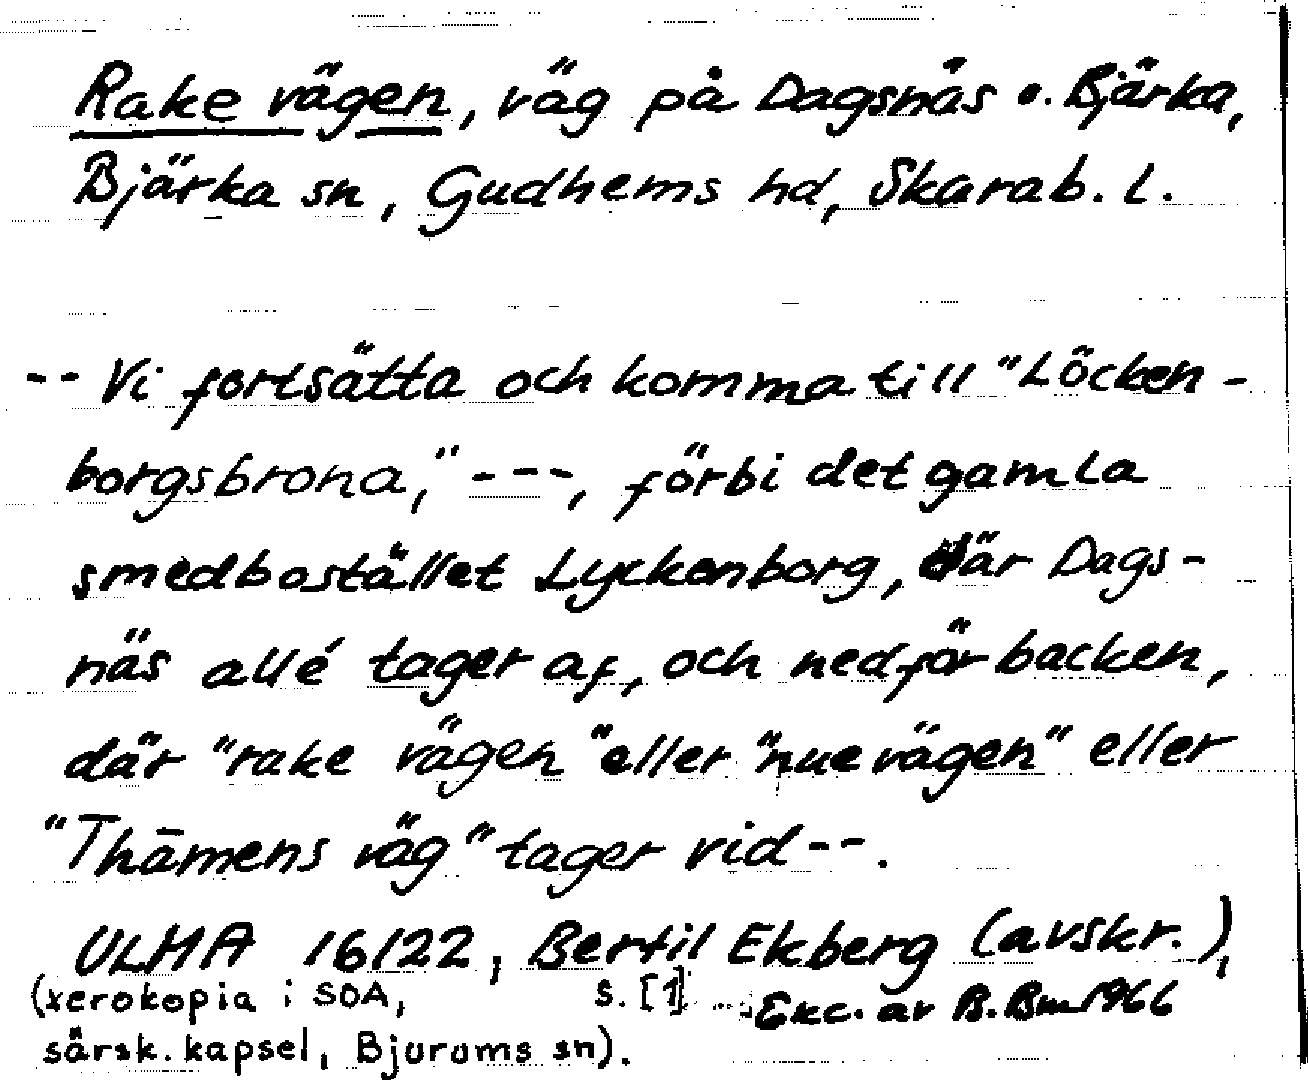 Rake vägen, väg på Dagsnäs o. Bjärka,
Bjärka sn, Gudhems hd, Skarab. l.
-- Vi fortsätta och komma till "Löcken-
borgsbrona," ---, förbi det gamla
smedbostället Lyckenborg, där Dags-
näs allé tager af, och nedför backen,
där "rake vägen" eller "nue vägen" eller
"Thāmens väg" tager vid--.
ULMA 16122, Bertil Ekberg (avskr.),
(xerokopia i SOA, s. [1]
Exc. av B. Bm 1966
särsk. kapsel, Bjurums sn).